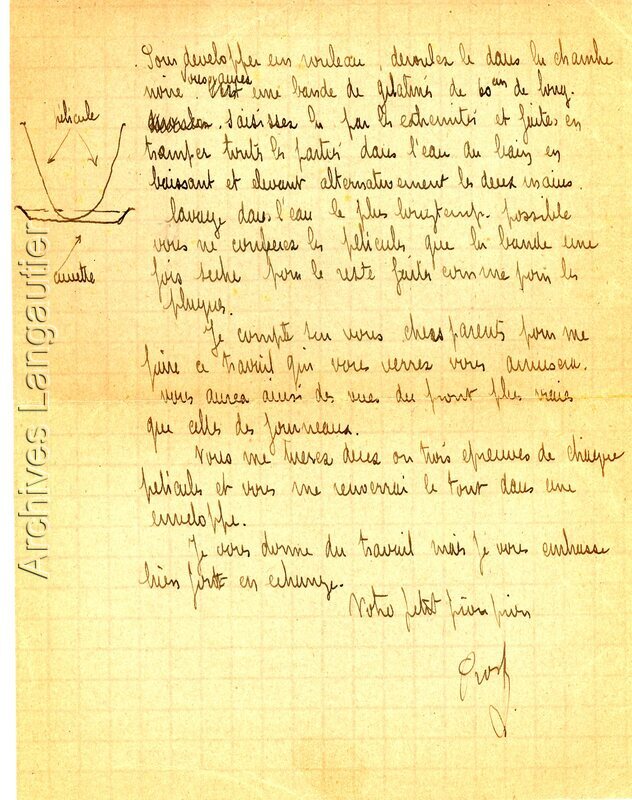 Pour developper un rouleau, deroulez le dans la chambre
noire. vous aurez une bande de gelatine de 60cm de long.
saisissez la par les extremités et faites en
tremper toutes les parties dans l'eau du bain en
baissant et elevant alternativement les deux mains.
lavage dans l'eau le plus longtemp possible
vous ne couperez les pelicules que la bande une
fois seche pour le reste faites comme pour les
plaques.
Je compte sur vous chers parents pour me
faire ce travail qui vous verrez vous amusera.
vous aurez ainsi des vues du front plus vraies
que celles des journeaux.
Vous me tirerez deux ou trois epreuves de chaque
pelicules et vous me renverrai le tout dans une
enveloppe.
Je vous donne du travail mais je vous embrasse
bien fort en echange.
Votre petit pioupiou
pelicule
cuvette
Archives Langautier